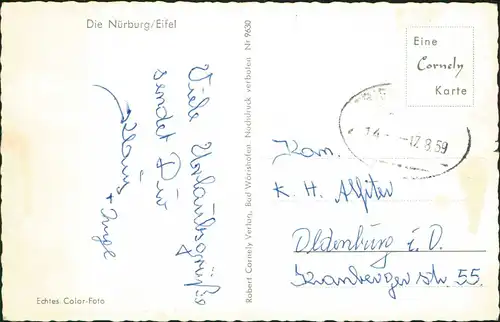 Die Nürburg/Eifel
Viele Urlaubsgrüße
sendet Dir
Klaus + Inge
Echtes Color-Foto
Robert Cornely Verlag, Bad Wörishofen Nachdruck verboten Nr 9630
Eine
Cornely
Karte
14. -12.8.59
Kan.
K. H.
Oldenburg i. O.
Kranbergerstr. 55.